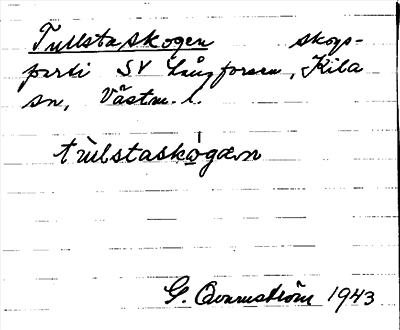 Tullstaskogen skogs-
parti SV Långforsen, Kila
sn, Västm. l.
tùlstaskógæn
G. Qvarnström 1943